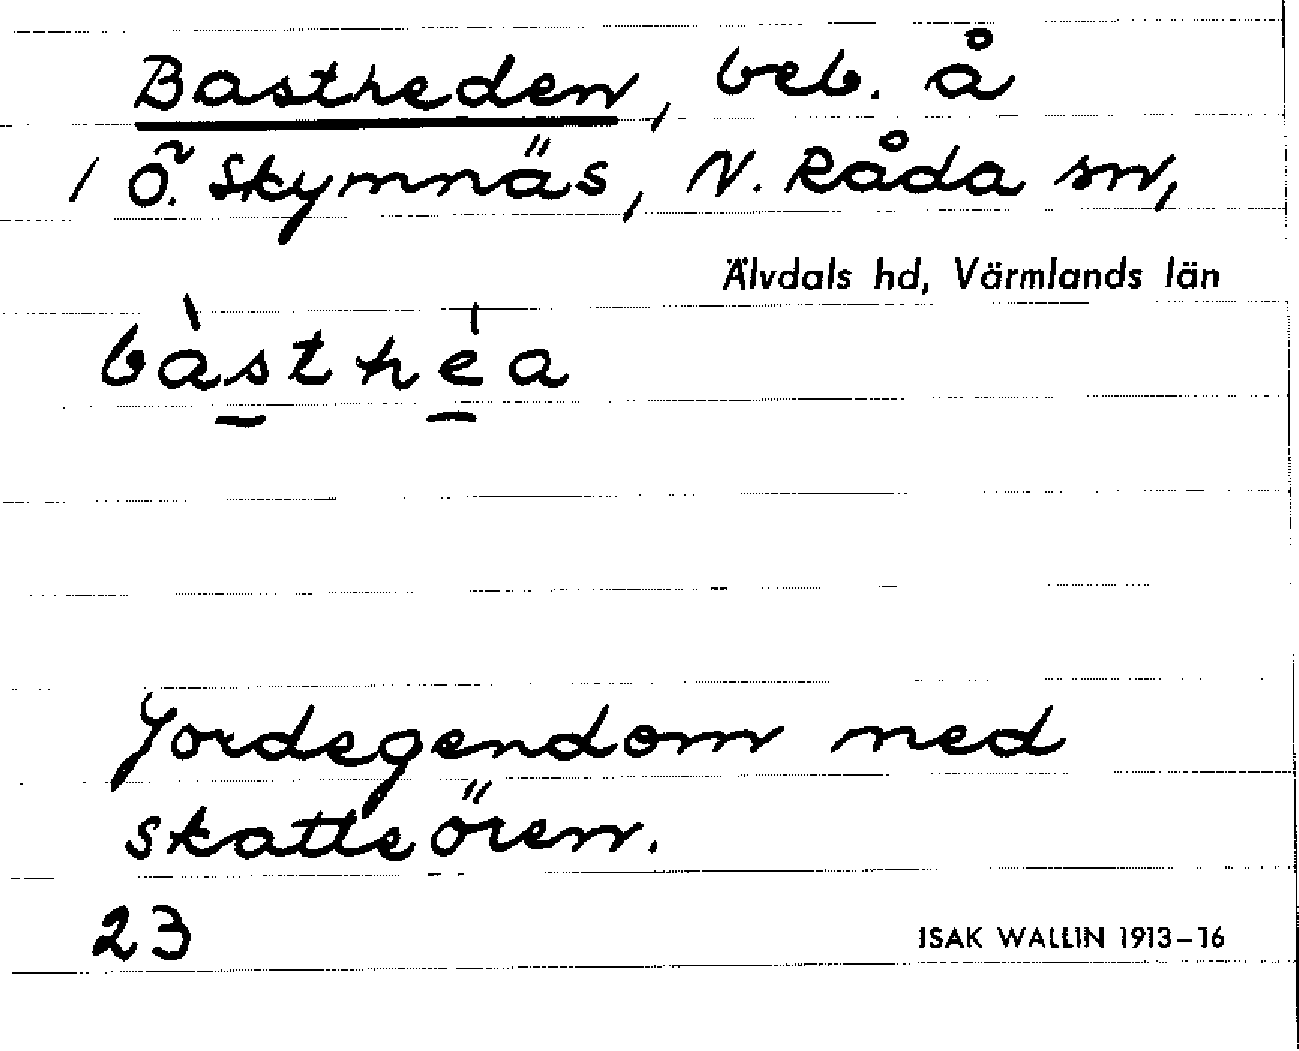 Bastheden, beb. å
/ Ö. Skymnäs, N. Råda sn,
Älvdals hd, Värmlands län
bàsthéa
Jordegendom med
skatteören.
23
ISAK WALLIN 1913–16